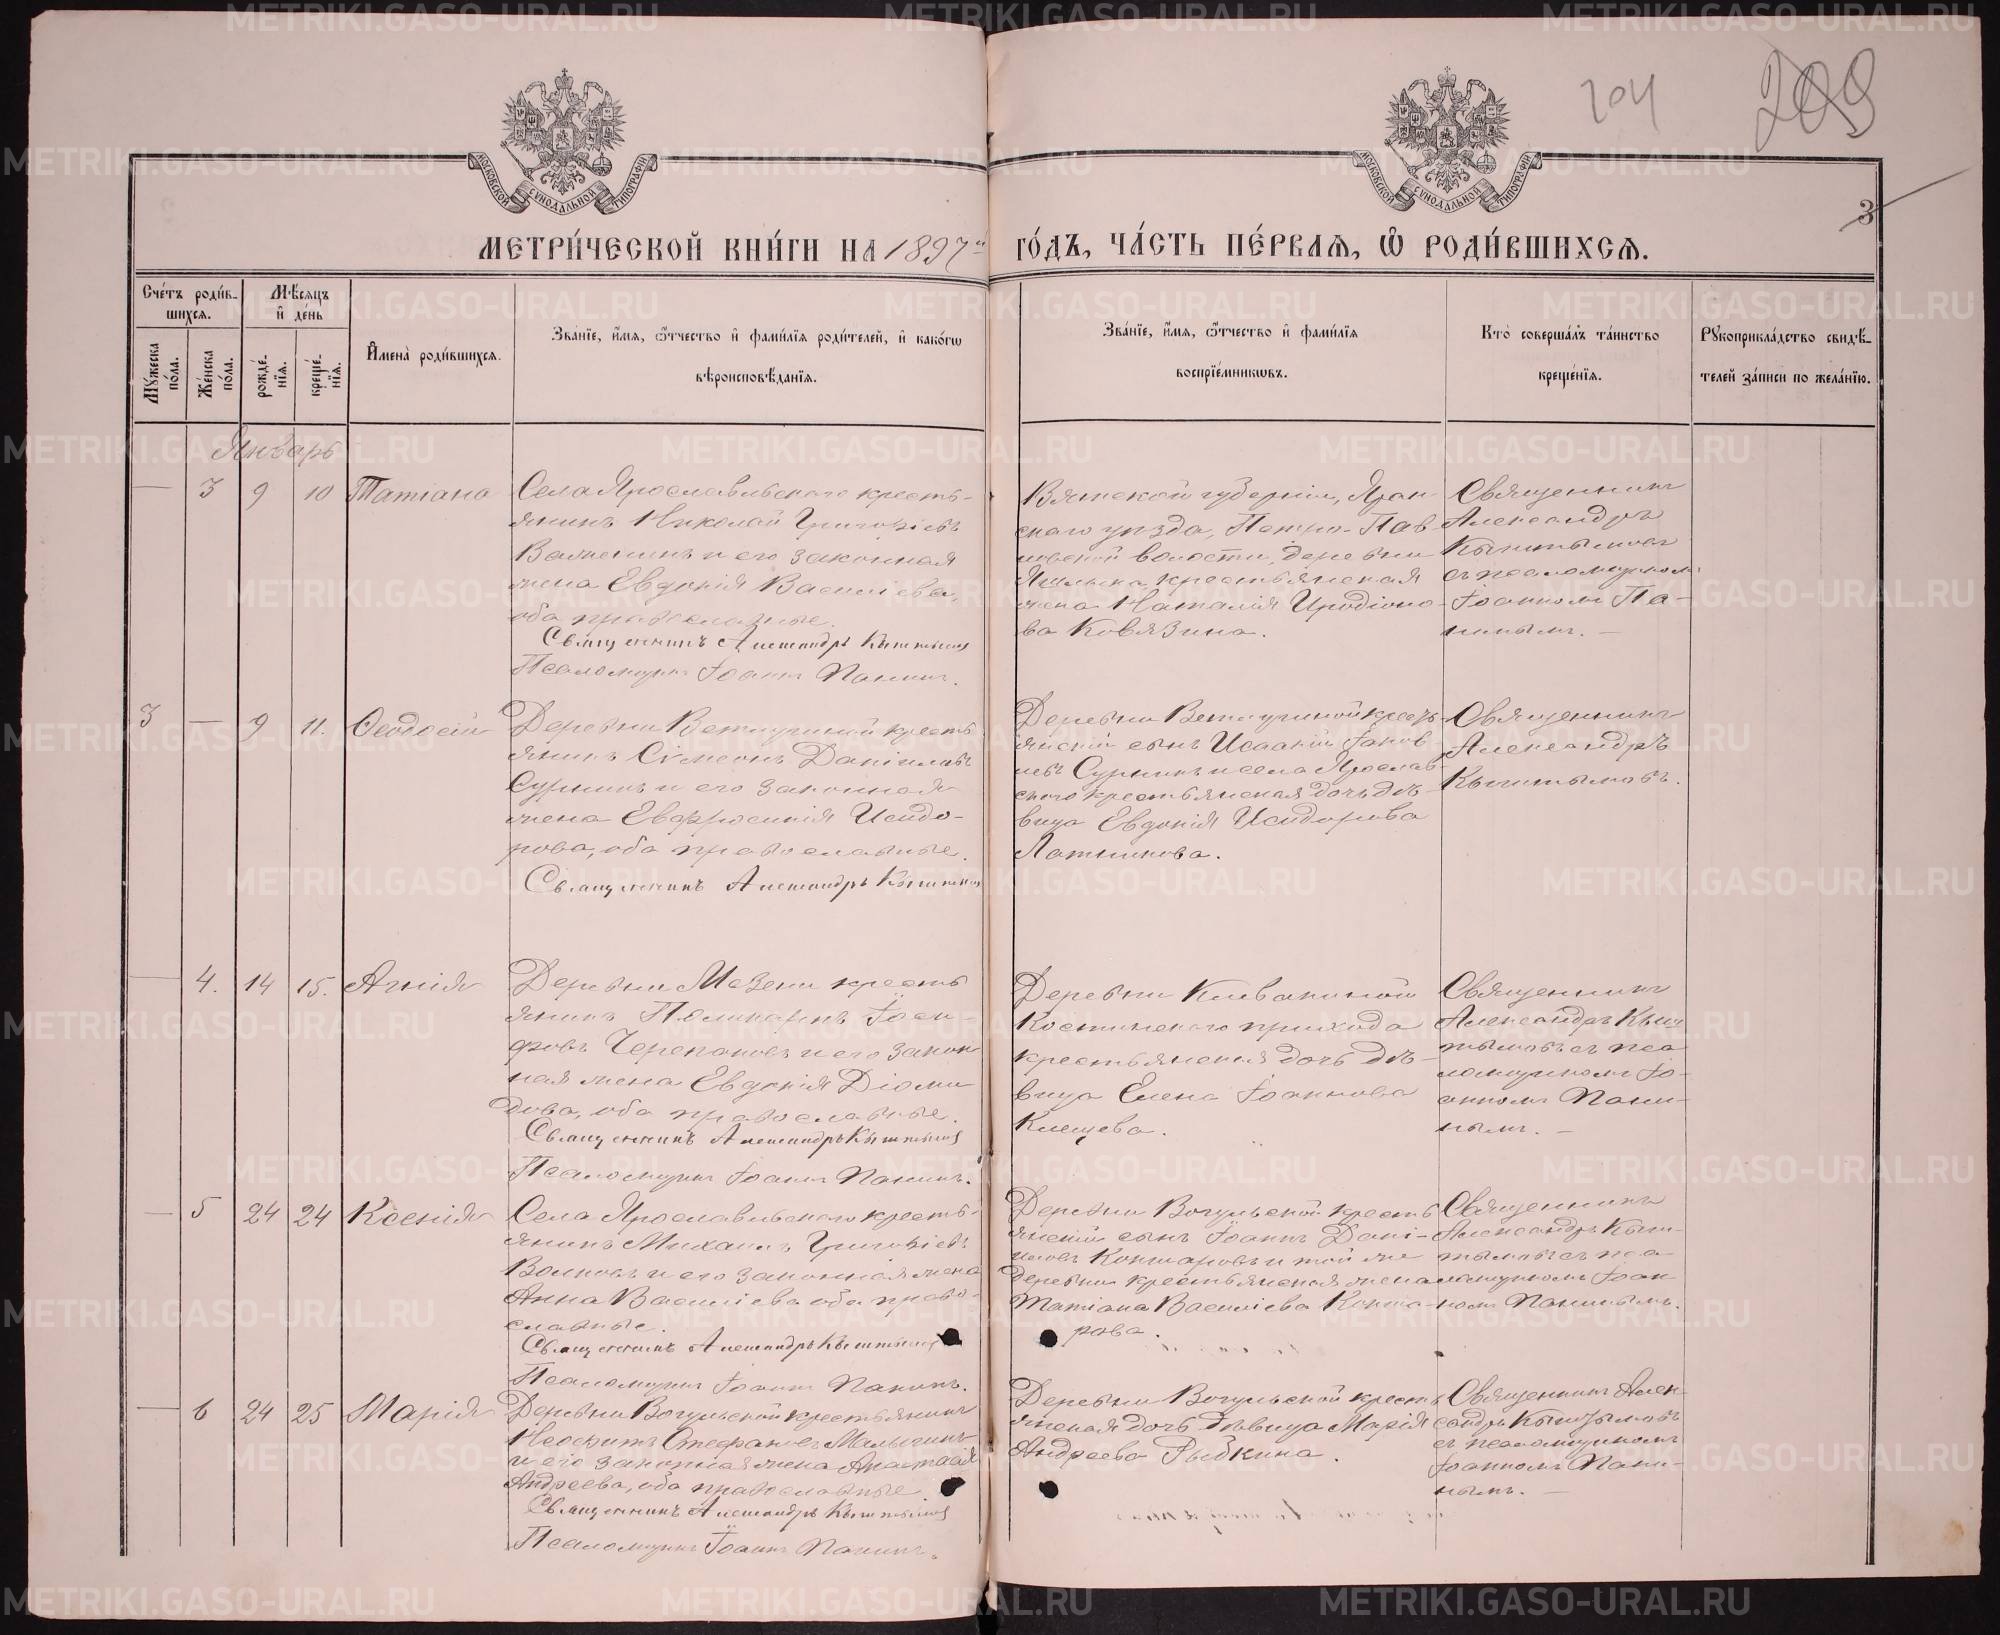 204
209
3
МОСКОВСКОЙ СѴНОДАЛЬНОЙ ТИПОГРАФІИ
МОСКОВСКОЙ СѴНОДАЛЬНОЙ ТИПОГРАФІИ
МЕТРИ́ЧЕСКОЙ КНИ́ГИ НА 1897й ГО́ДЪ, ЧА́СТЬ ПЕ́РВАѦ, Ѡ РОДИ́ВШИХСѦ.
Сче́тъ роди́в-
шихсѧ.
Мꙋ́жеска по́ла.
Же́нска по́ла.
Мѣ́сѧцъ и де́нь
рожде́-
нїѧ.
креще́-
нїѧ.
Имена̀ роди́вшихсѧ.
Зва́нїе, и́мѧ, ѿчество и фами́лїѧ роди́телей, и како́гѡ
вѣроисповѣ́данїѧ.
Зва́нїе, и́мѧ, ѿчество и фами́лїѧ
воспрїе́мникѡвъ.
Кто̀ соверша́лъ та́инство
креще́нїѧ.
Рꙋкоприкла́дство свидѣ́-
телей за́писи по жела́нїю.
Январь
— 3 9 10 Татіана
Села Ярославльскаго кресть-
янинъ Николай Григоріевъ
и его законная
жена Евдокія Васильева,
оба православные.
Священникъ Александръ Кыштымовъ
Псаломщикъ Іоаннъ Панинъ.
Вятской губерніи, Яран-
скаго уѣзда, Петро-Пав-
ловской волости, деревни
крестьянская
жена Наталія Иродіоно-
ва Ковязина.
Священникъ
Александръ
Кыштымовъ
съ псаломщикомъ
Іоанномъ Па-
нинымъ. —
3 — 9 11. Ѳеодосій
Деревни Ветлугиной кресть-
янинъ Сімеонъ Даніиловъ
Суринъ и его законная
жена Евфросинія Исидо-
рова, оба православные.
Священникъ Александръ Кыштымовъ
Деревни Ветлугиной кресть-
янскій сынъ Исаакій Іаков-
левъ Суринъ и села Ярослав-
скаго крестьянская дочь дѣ-
вица Евдокія Исидорова
Латникова.
Священникъ
Александръ
Кыштымовъ.
— 4. 14 15. Агнія
Деревни Мазени кресть
янинъ Поликарпъ Іоси-
фовъ Черепановъ и его закон
ная жена Евдокія Діоми
дова, оба православные.
Священникъ Александръ Кыштымовъ
Псаломщикъ Іоаннъ Панинъ.
Деревни Клевакиной
Костинскаго прихода
крестьянская дочь дѣ-
вица Елена Іоаннова
Клещева.
Священникъ
Александръ Кыш
тымовъ съ пса
ломщикомъ Іо-
анномъ Пани-
нымъ. —
— 5 24 24 Ксенія
Села Ярославльскаго кресть-
янинъ Михаилъ Григоріевъ
Волковъ и его законная жена
Анна Васильева оба право-
славные.
Священникъ Александръ Кыштымовъ
Псаломщикъ Іоаннъ Панинъ.
Деревни Вогульской кресть
янскій сынъ Іоаннъ Дані-
иловъ Кокшаровъ и той же
деревни крестьянская жена
Татіана Васильева Кокша-
рова.
Священникъ
Александръ Кыш-
тымовъ съ пса-
ломщикомъ Іоан-
номъ Панинымъ.
— 6 24 25 Марія
Деревни Вогульской крестьянинъ
Неофитъ Стефановъ Малыгинъ
и его законная жена Анастасія
Андреева, оба православные
Священникъ Александръ Кыштымовъ
Псаломщикъ Іоаннъ Панинъ.
Деревни Вогульской кресть
янская дочь дѣвица Марія
Андреева Рыбкина.
Священникъ Алек-
сандръ Кыштымовъ
съ псаломщикомъ
Іоанномъ Пани-
нымъ. —
METRIKI.GASO-URAL.RU